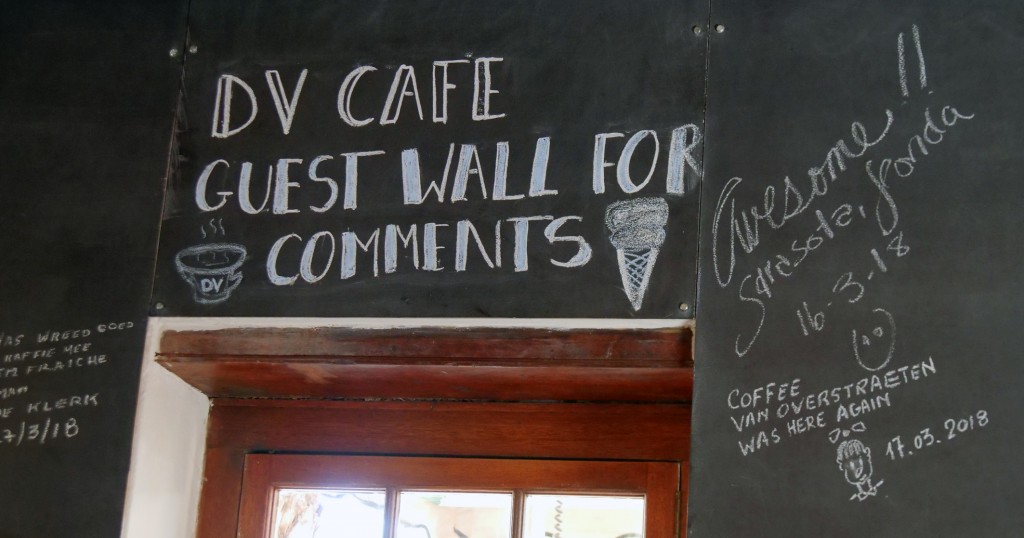 DV CAFE
GUEST WALL FOR
COMMENTS
DV
WREED GOED
KAFFIE MEE
FRAICHE
DE KLERK
7/3/18
Awesome!!
Sarasota, Florida
16-3-18
COFFEE
VAN OVERSTRAETEN
WAS HERE AGAIN
17.03.2018